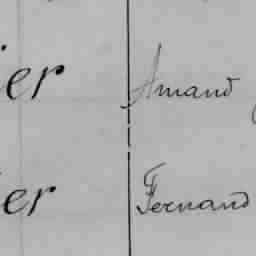 ier Amand
ier Fernand